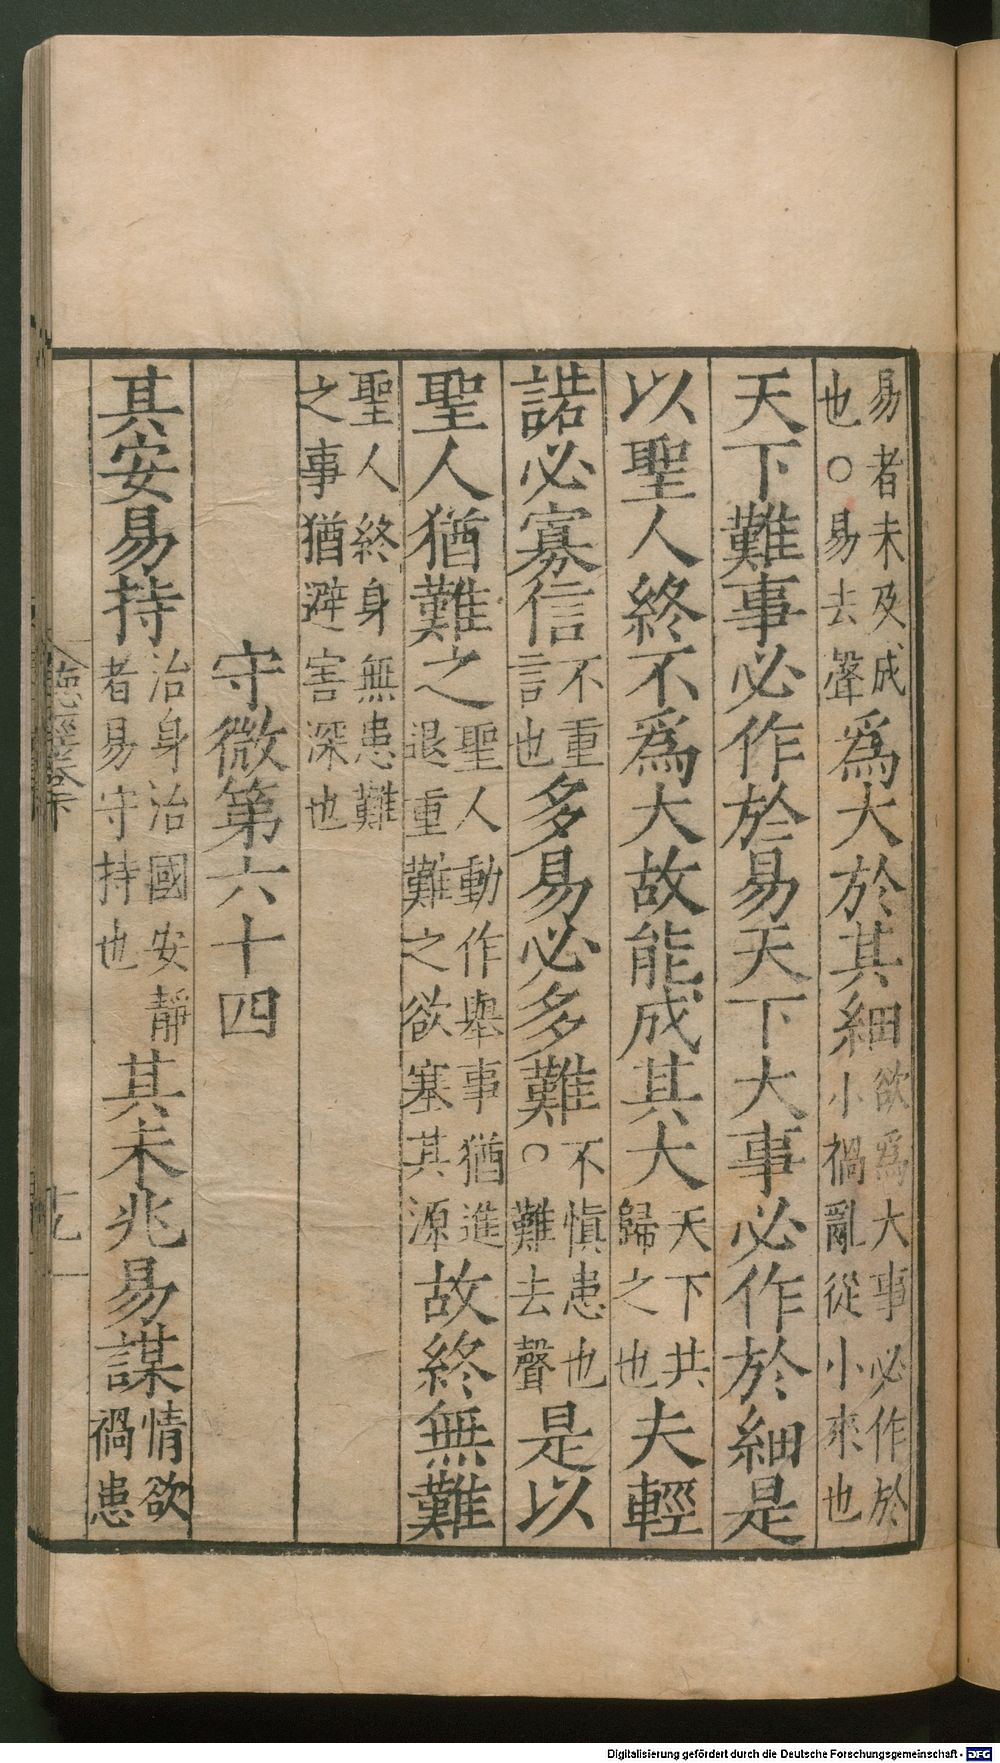 易者未及成
也○易去聲
爲大於其細
欲爲大事必作於
小禍亂從小來也
天下難事必作於易天下大事必作於細是
以聖人終不爲大故能成其大
天下共
歸之也
夫輕
諾必寡信
不重
言也
多易必多難
不愼患也
○難去聲
是以
聖人猶難之
聖人動作舉事猶進
退重難之欲塞其源
故終無難
聖人終身無患難
之事猶避害深也
守微第六十四
其安易持
治身治國安靜
者易守持也
其未兆易謀
情欲
禍患
德經卷下
十九
Digitalisierung gefördert durch die Deutsche Forschungsgemeinschaft - DFG